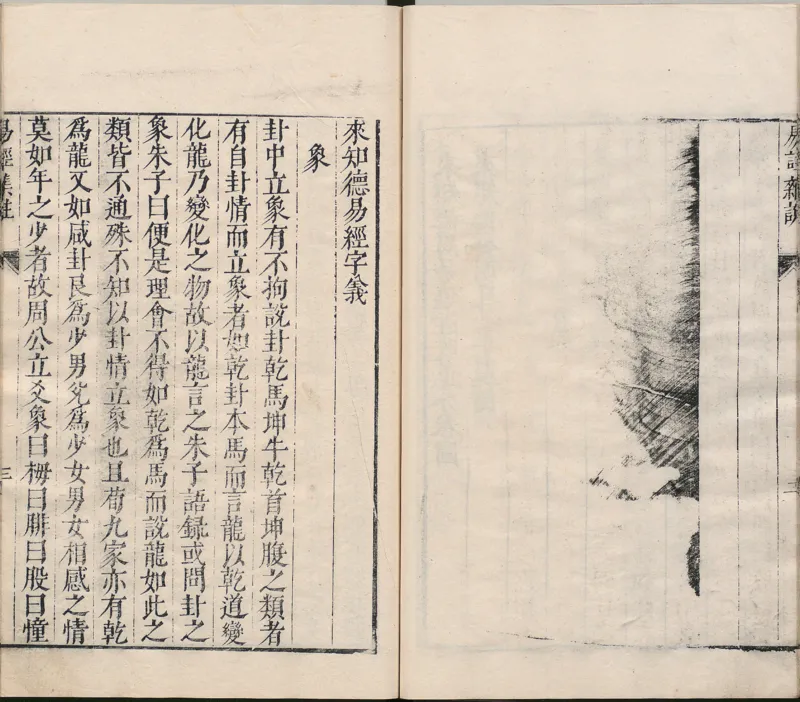 來知德易經字義
象
卦中立象有不拘說卦乾馬坤牛乾首坤腹之類者
有自卦情而立象者如乾卦本馬而言龍以乾道變
化龍乃變化之物故以龍言之朱子語録或問卦之
象朱子曰便是理會不得如乾爲馬而說龍如此之
類皆不通殊不知以卦情立象也且荀九家亦有乾
爲龍又如咸卦艮爲少男兌爲少女男女相感之情
莫如年之少者故周公立爻象曰拇曰腓曰股曰憧
易經集註
三